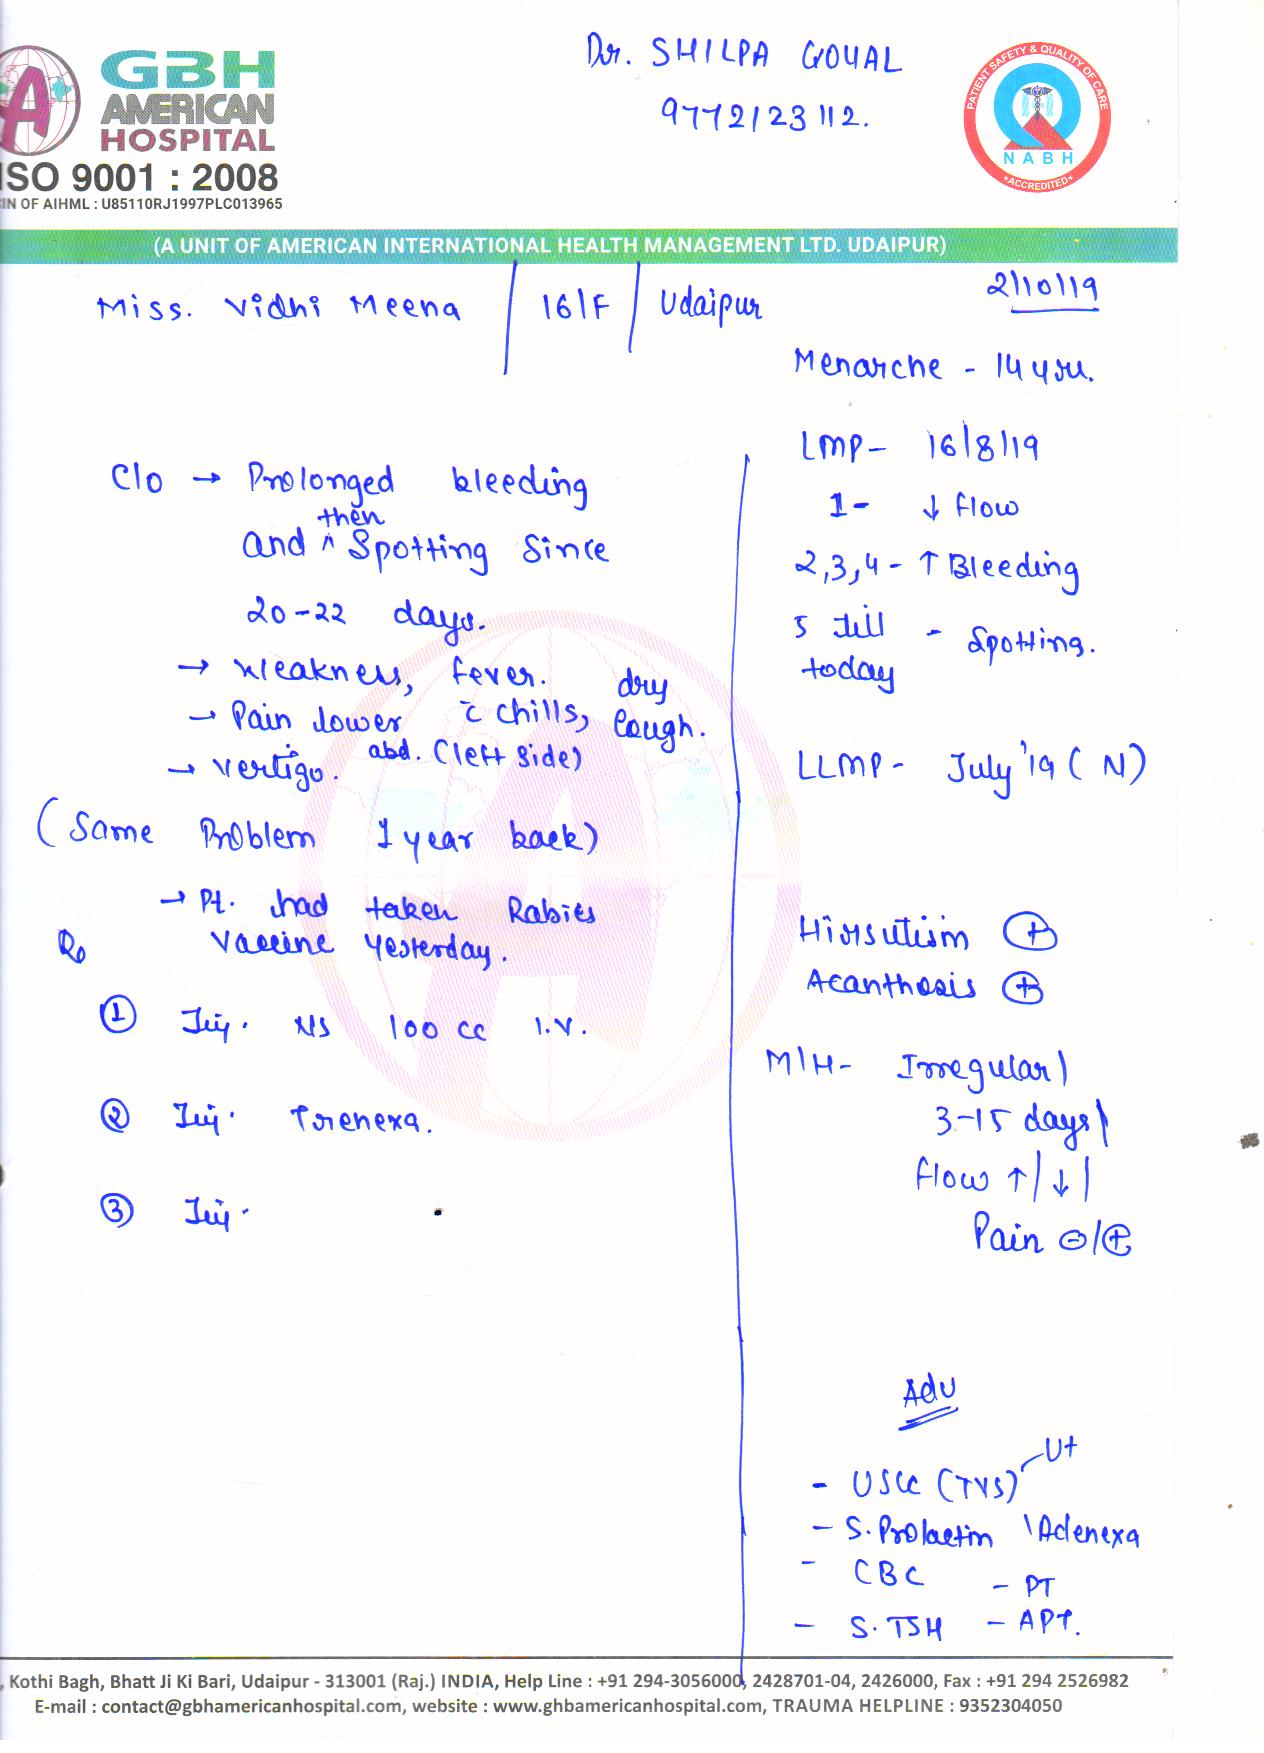 GBH
AMERICAN
HOSPITAL
ISO 9001 : 2008
CIN OF AIHML : U85110RJ1997PLC013965
Dr. SHILPA GOYAL
9772123112.
PATIENT SAFETY & QUALITY OF CARE
NABH
ACCREDITED
(A UNIT OF AMERICAN INTERNATIONAL HEALTH MANAGEMENT LTD. UDAIPUR)
2/10/19
Miss. Vidhi Meena / 16/F / Udaipur
C/o → Prolonged bleeding
and ^ then Spotting Since
20-22 days.
→ Weakness, fever. dry
→ Pain lower c̄ chills, Cough.
abd. (left side)
→ Vertigo.
(Same Problem 1 year back)
→ Pt. had taken Rabies
Vaccine yesterday.
Rx
① Inj. NS 100 cc I.V.
② Inj. Trenexa.
③ Inj.
Menarche - 14 yrs.
LMP- 16/8/19
1- ↓ flow
2,3,4 - ↑ Bleeding
5 till - Spotting.
today
LLMP - July '19 (N)
Hirsutism ⊕
Acanthosis ⊕
M/H- Irregular/
3-15 days/
flow ↑/↓/
Pain ⊖/⊕
Adv
- USG (TVS) Ut
- S. Prolactin \Adenexa
- CBC - PT
- S. TSH - APT.
, Kothi Bagh, Bhatt Ji Ki Bari, Udaipur - 313001 (Raj.) INDIA, Help Line : +91 294-3056000, 2428701-04, 2426000, Fax : +91 294 2526982
E-mail : contact@gbhamericanhospital.com, website : www.ghbamericanhospital.com, TRAUMA HELPLINE : 9352304050